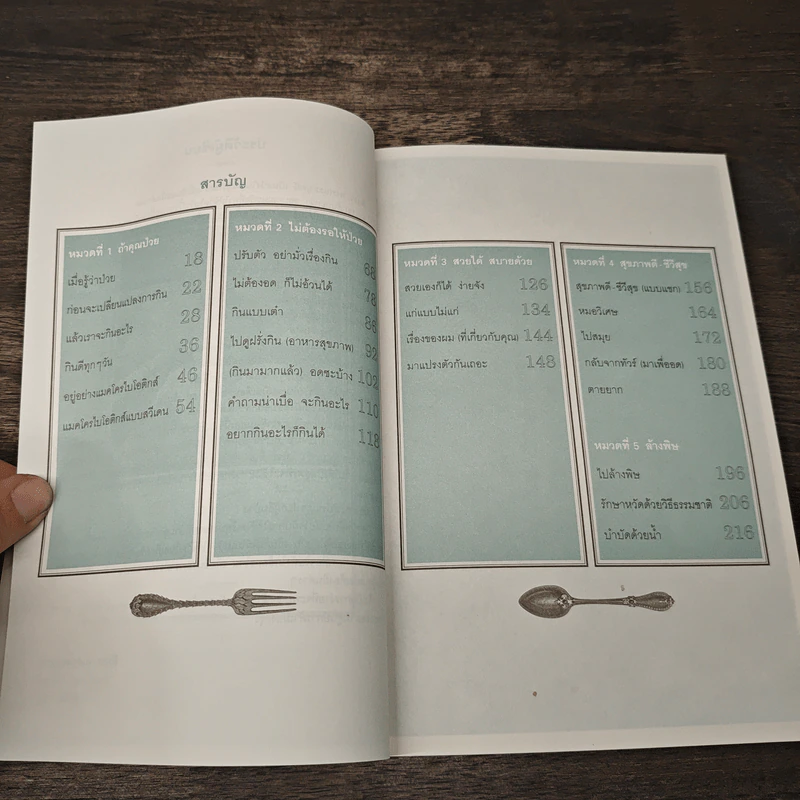 สารบัญ
หมวดที่ 1 ถ้าคุณป่วย
เมื่อรู้ว่าป่วย 18
ก่อนจะเปลี่ยนแปลงการกิน 22
แล้วเราจะกินอะไร 28
กินดีทุกๆวัน 36
อยู่อย่างแมคโครไบโอติกส์ 46
แมคโครไบโอติกส์แบบสวีเดน 54
หมวดที่ 2 ไม่ต้องรอให้ป่วย
ปรับตัว อย่ามั่วเรื่องกิน 68
ไม่ต้องอด ก็ไม่อ้วนได้ 78
กินแบบเต๋า 86
ไปดูฝรั่งกิน (อาหารสุขภาพ) 92
(กินมามากแล้ว) อดซะบ้าง 102
คำถามน่าเบื่อ จะกินอะไร 110
อยากกินอะไรก็กินได้ 118
หมวดที่ 3 สวยได้ สบายด้วย
สวยเองก็ได้ ง่ายจัง 126
แก่แบบไม่แก่ 134
เรื่องของผม (ที่เกี่ยวกับคุณ) 144
มาแปรงตัวกันเถอะ 148
หมวดที่ 4 สุขภาพดี-ชีวีสุข
สุขภาพดี-ชีวีสุข (แบบแขก) 156
หมอวิเศษ 164
ไปสมุย 172
กลับจากทัวร์ (มาเพื่ออด) 180
ตายยาก 188
หมวดที่ 5 ล้างพิษ
ไปล้างพิษ 196
รักษาหวัดด้วยวิธีธรรมชาติ 206
บำบัดด้วยน้ำ 216